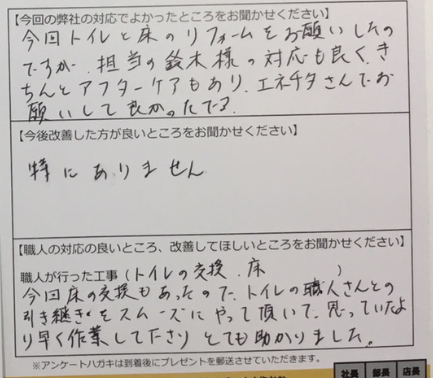 【今回の弊社の対応でよかったところをお聞かせください】
今回トイレと床のリフォームをお願いしたの
ですが、担当の鈴木様の対応も良く、き
ちんとアフターケアもあり、エネチタさんでお
願いして良かったです。
【今後改善した方が良いところをお聞かせください】
特にありません
【職人の対応の良いところ、改善してほしいところをお聞かせください】
職人が行った工事(トイレの交換、床 )
今回床の交換もあったので、トイレの職人さんとの
引き継ぎをスムーズにやって頂いて、思っていたよ
り早く作業して下さり とても助かりました。
※アンケートハガキは到着後にプレゼントを郵送させていただきます。
社長 部長 店長